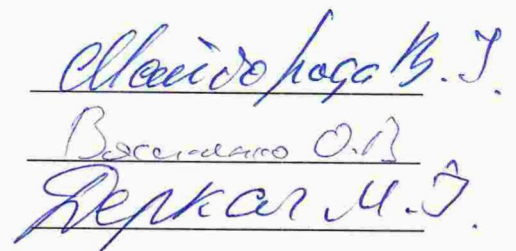 Майборода В. І.
Василенко О.В
Деркач М.І.